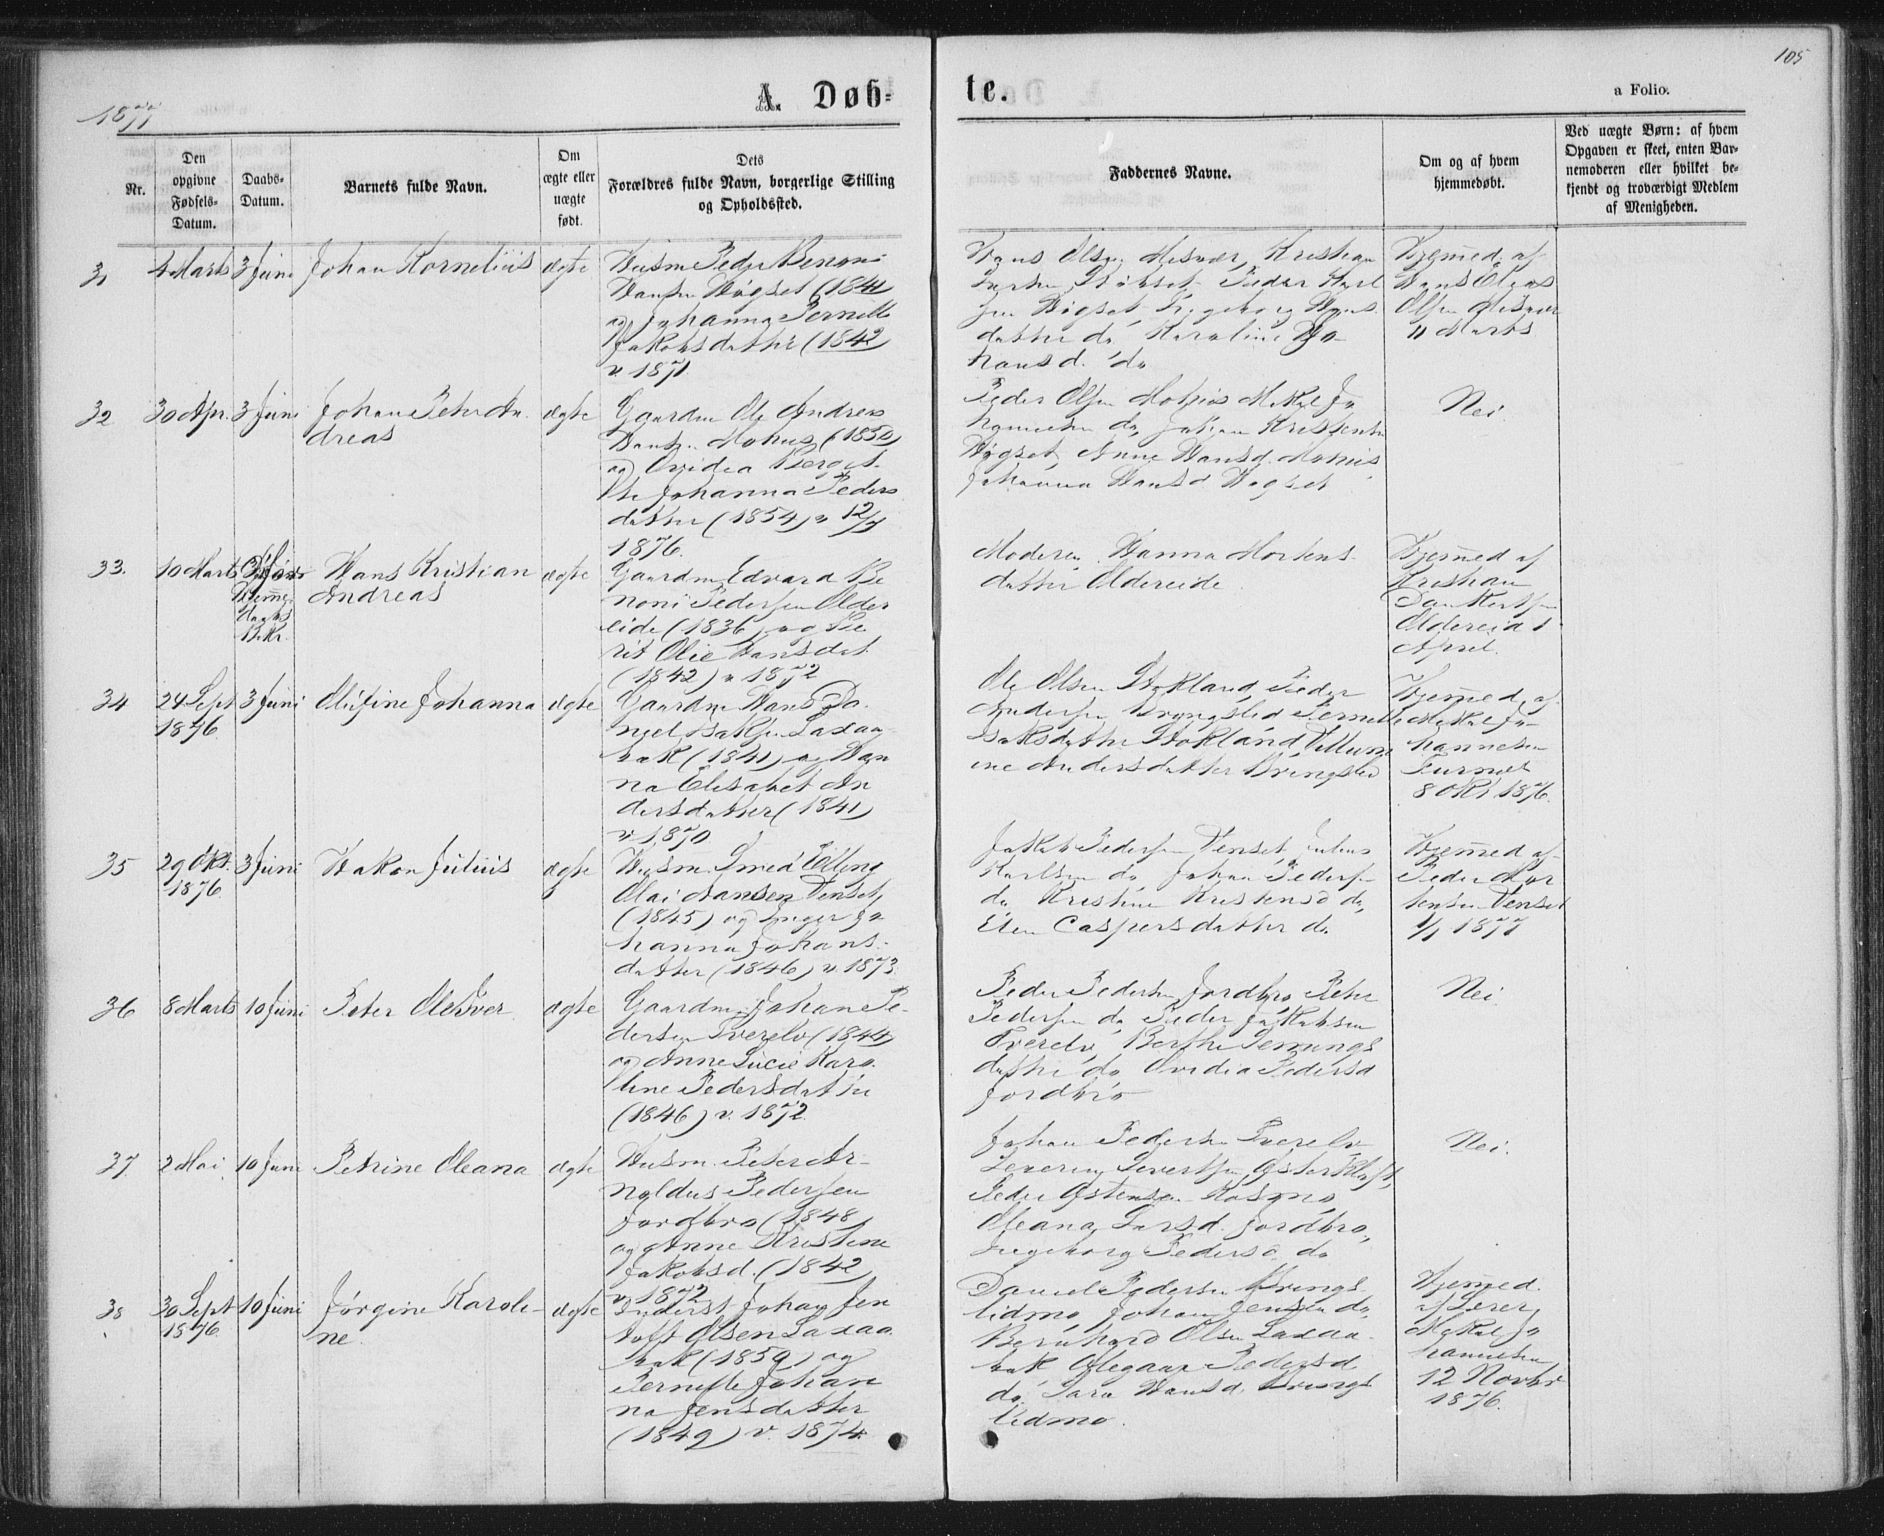 105
1877
A. Døb-
te.
a Folio.
Nr.
Den
opgivne
Fødsels-
Datum.
Daabs-
Datum.
Barnets fulde Navn.
Om
ægte eller
uægte
født.
Dets
Forældres fulde Navn, borgerlige Stilling
og Opholdssted.
Faddernes Navne.
Om og af hvem
hjemmedøbt.
Ved uægte Børn: af hvem
Opgaven er skeet, enten Bar-
nemoderen eller hvilket be-
kjendt og troværdigt Medlem
af Menigheden.
31
4 Marts
3 Juni
Johan Kornelius
ægte
Husm. Peder Benoni
Hansen Høgset (1841)
og Johanna Pernille
Jakobsdatter (1842
v. 1871
Hans Olsen Mesvær, Kristian
Peder Karl
Høgset, Ingeborg Hans
datter do, Karoline Jo
hansd. do
Hjemmed. af
Hans Olaus
Olsen Mesvær
11 Marts
32
30 Apr.
3 Juni
Johan Peter An
dreas
ægte
Gaardm Ole Andreas
Hansen (1850)
og Ovidia Berget
te Johanna Peders
datter (1854) v 12/7
1876.
Peder Olsen Mikal Jo
hannesen do, Johan Kristensen
Høgset, Anne Hansd.
Johanna Hansd Høgset
Nei
33.
10 Marts
3 Juni
Hjemme
daabs
Bekr.
Hans Kristian
Andreas
ægte
Gaardm Edvard Be
noni Pedersen Older
eide (1836) og Be
rit Olie Hansdat.
(1842) v 1872
Moderen, Hanna Mortens
datter Oldereide
Hjemmed af
Kristian
Dankertsen
Oldereid 1
April.
34
24 Sept
1876
3 Juni
Olufine Johanna
ægte
Gaardm Hans Da
niel Isaksen Saxaa
bak (1841) og Han
na Elisabet An
dersdatter (1841)
v. 1870
Ole Olsen Stokland, Peder
Andersen Bringslid Pernille
Isaksdatter Stokland, Villum
ine Andersdatter Bringslid
Hjemmed. af
Mikal Jo
hannesen
8 Okt 1876.
35
29 Okt.
1876
3 Juni
Hakon Julius
ægte
Husm. Smed Elling
Olai Hansen Venset
(1845) og Inger Jo
hanna Johans-
datter (1846) v. 1873.
Jakob Pedersen Venset, Julius
Karlsen do Johan Pedersen
do Kristine Kristensd do,
Elen Caspersdatter do
Hjemmed af
Peder Mor
tensen Venset
1/1 1877
36
8 Marts
10 Juni
Peter Ole Iver
ægte
Gaardm. Johan Pe-
dersen Tverelv (1844)
og Anne Lucie Karo
line Pedersdatter
(1846) v. 1872
Peder Pedersen Jordbro, Peter
Pedersen do Peder Jakobsen
Tverelv, Berthe Jennings
datter do Ovidia Pedersd
Jordbro
Nei
37.
2 Mai
10 Juni
Petrine Oleana
ægte
Husm. Peter Ar-
noldus Pedersen
Jordbro (1848)
og Anne Kristine
Jakobsd. (1842)
v 1872
Johan Pedersen Tverelv
Severin Sivertsen Østerkløft,
Peder Østensen Rosmo,
Oleana Larsd. Jordbro,
Ingeborg Pedersd do
Nei.
38
30 Sept
1876
10 Juni
Jørgine Karoli-
ne.
ægte
Inderst Johan Jen
toft Olsen Saxaa
bak (1850) og
Pernille Johan
na Jensdatter
(1849) v. 1874.
Daniel Pedersen Brings
lidmo, Johan Jensen do
Bernhard Olsen Saxaa-
bak Olegaar Pedersd
do, Sara Hansd. Brings
lidmo.
Hjemmed.
af Lærer
Mikal Jo
hannesen
12 Novbr
1876.